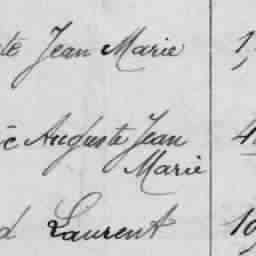 te Jean Marie 1,
c Auguste Jean 4
Marie
d Laurent 19